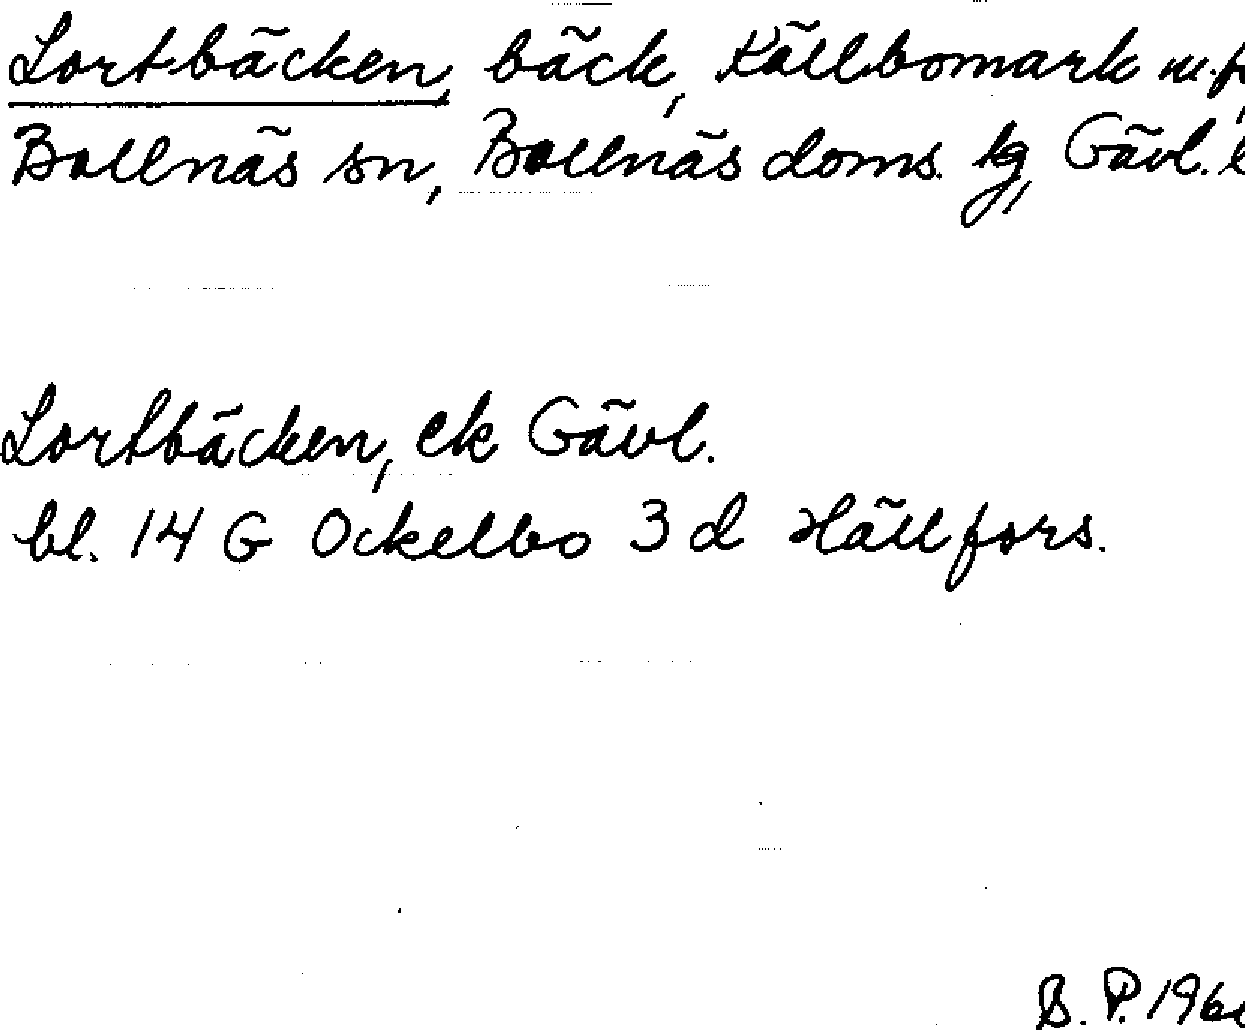 Lortbäcken, bäck, Källbomark m.f
Bollnäs sn, Bollnäs doms. tg, Gävl. l
Lortbäcken, ek Gävl.
bl. 14 G Ockelbo 3 d Hällfors.
B. P. 196